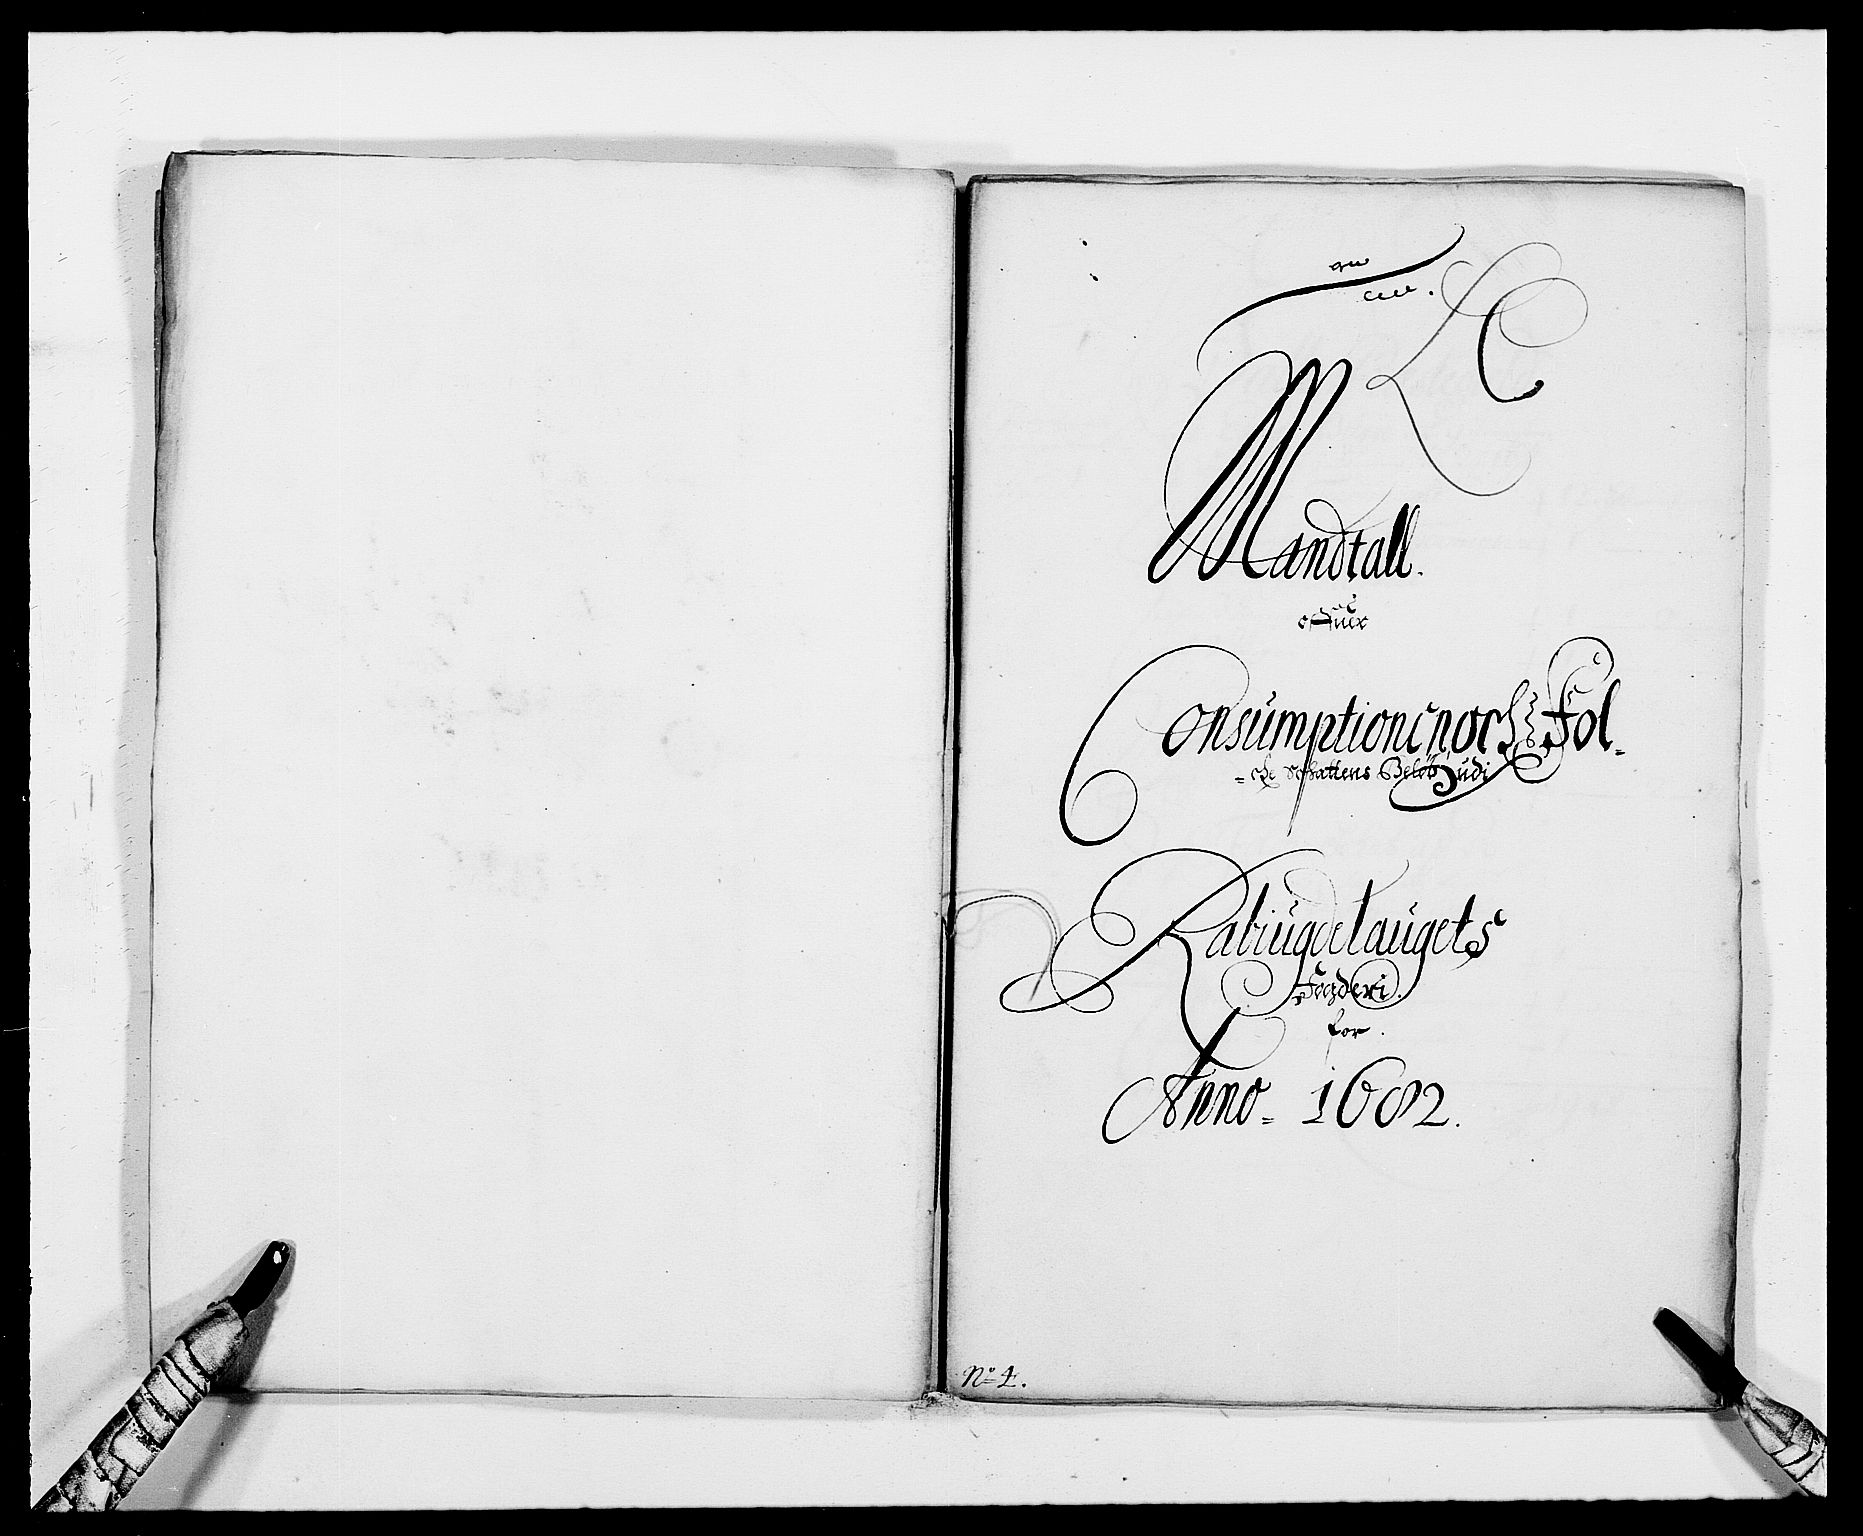 Mandtall.
offuer
Consumptionen och Fol-
=che Schattens Beløb udi
Rabiugdelaugets
Fogderi.
for.
Anno= 1682.
No 4.